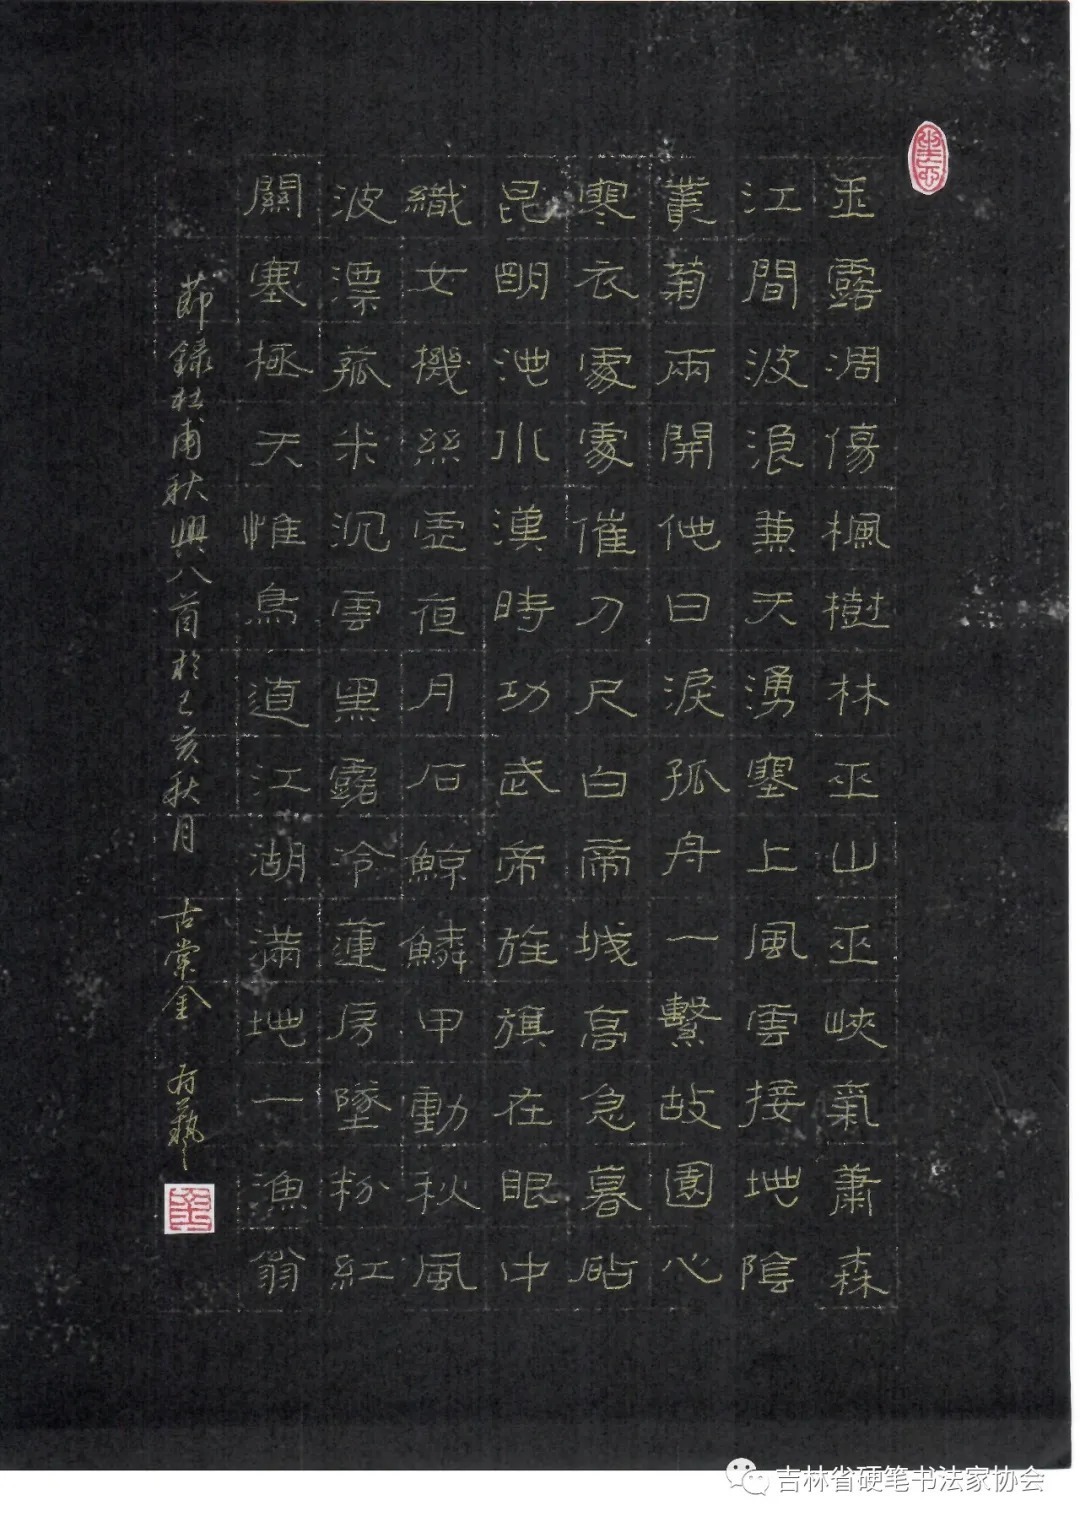 玉露凋傷楓樹林巫山巫峽氣蕭森
江間波浪兼天湧塞上風雲接地陰
叢菊兩開他日淚孤舟一繫故園心
寒衣處處催刀尺白帝城高急暮砧
昆明池水漢時功武帝旌旗在眼中
織女機絲虛夜月石鯨鱗甲動秋風
波漂菰米沉雲黑露冷蓮房墜粉紅
關塞極天惟鳥道江湖滿地一漁翁
節錄杜甫秋興八首於己亥秋月 古棠金 有藝
吉林省硬笔书法家协会